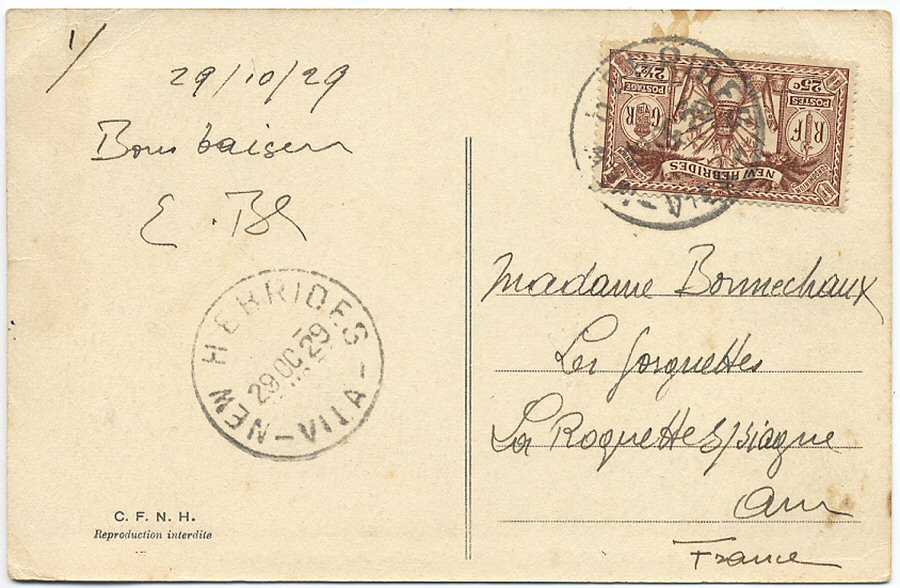 1/
29/10/29
Bons baisers
E. Bl
NEW HEBRIDES
29 OC 29
-VILA-
C. F. N. H.
Reproduction interdite
25c
2½d
POSTES
POSTAGE
R F
G R
NEW HEBRIDES
Madame Bonnechaux
Les Gorguettes
La Roquette s/Siagne
France